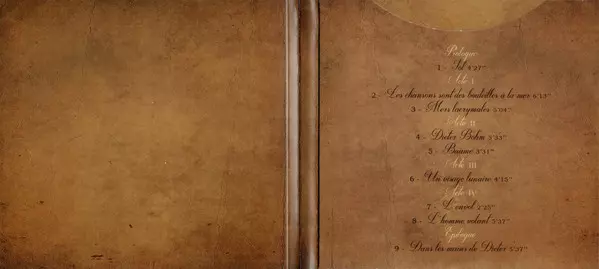 Prologue
1 - Sol 4'27"
Acte I
2 - Les chansons sont des bouteilles à la mer 6'13"
3 - Mers lacrymales 5'04"
Acte II
4 - Didier Böhm
5 - Baume 3'31"
Acte III
6 - Un visage lunaire 4'15"
Acte IV
7 - L'envol
8 - L'homme volant
Epilogue
9 - Dans les mains de Didier